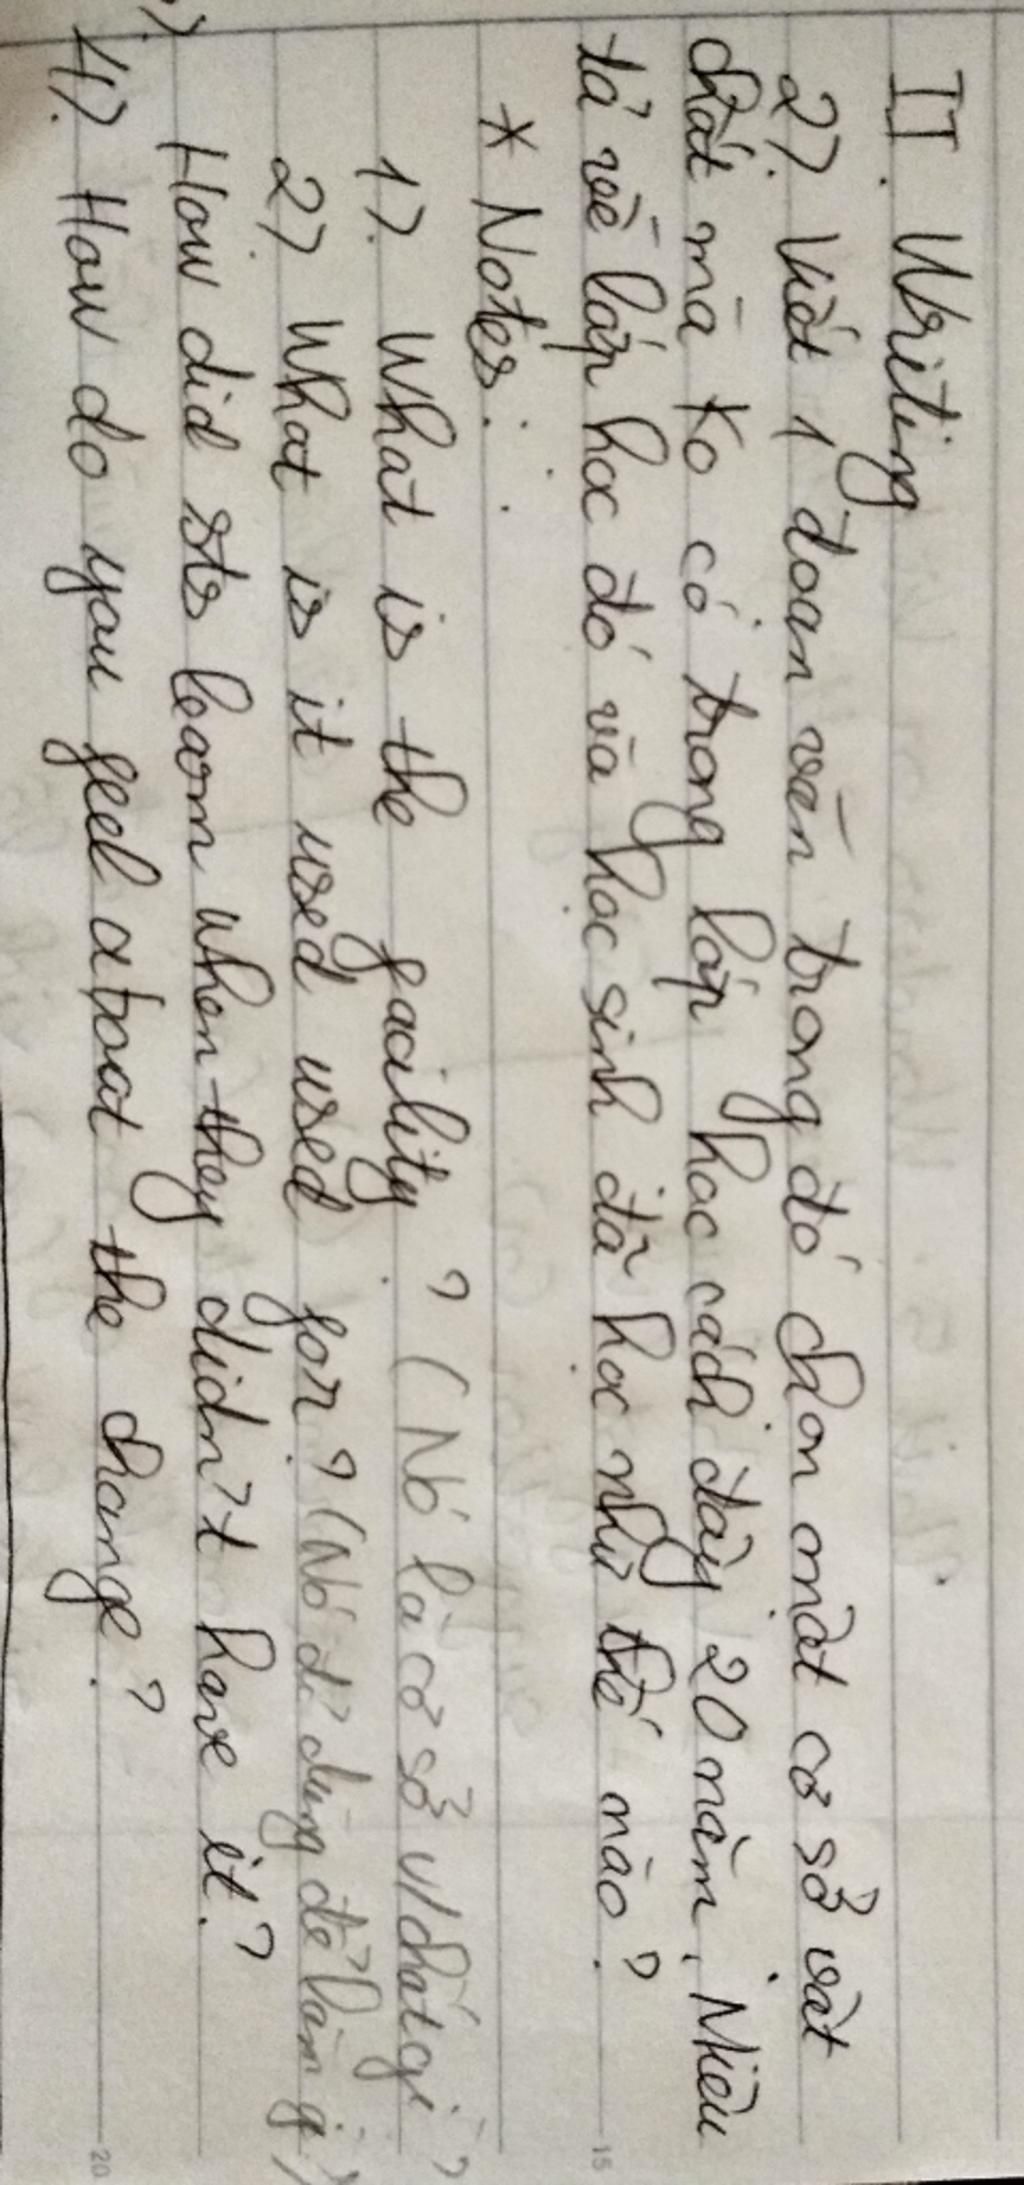 II. Writing
2). Viết 1 đoạn văn trong đó chọn một cơ sở vật
chất mà ko có trong lớp học cách đây 20 năm, Miêu
tả về lớp học đó và học sinh đã học như thế nào?
* Notes:
1). What is the facility? (Nó là cơ sở v/chất gì?
2) What is it used used for? (Nó để dùng để làm gì)
How did sts learn when they didn't have it?
4). How do you feel about the change?
15
20